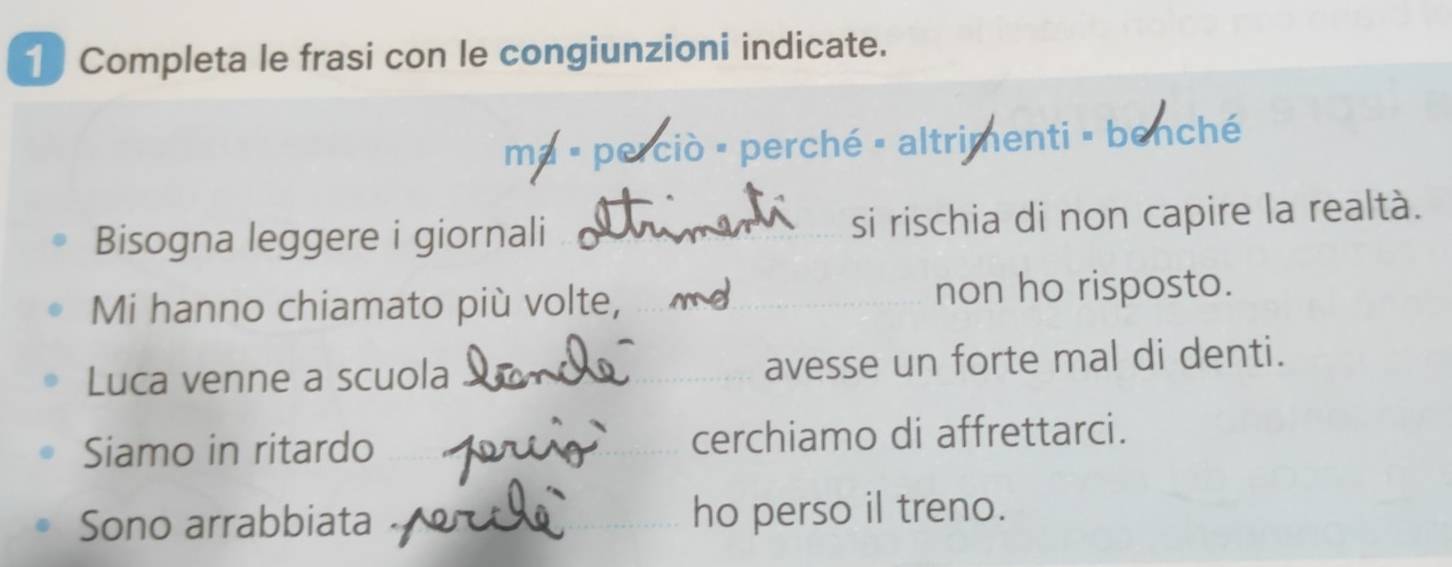 1 Completa le frasi con le congiunzioni indicate.
ma ▪ perciò ▪ perché ▪ altrimenti ▪ benché
• Bisogna leggere i giornali altrimenti si rischia di non capire la realtà.
• Mi hanno chiamato più volte, ma non ho risposto.
• Luca venne a scuola benché avesse un forte mal di denti.
• Siamo in ritardo perciò cerchiamo di affrettarci.
• Sono arrabbiata perché ho perso il treno.